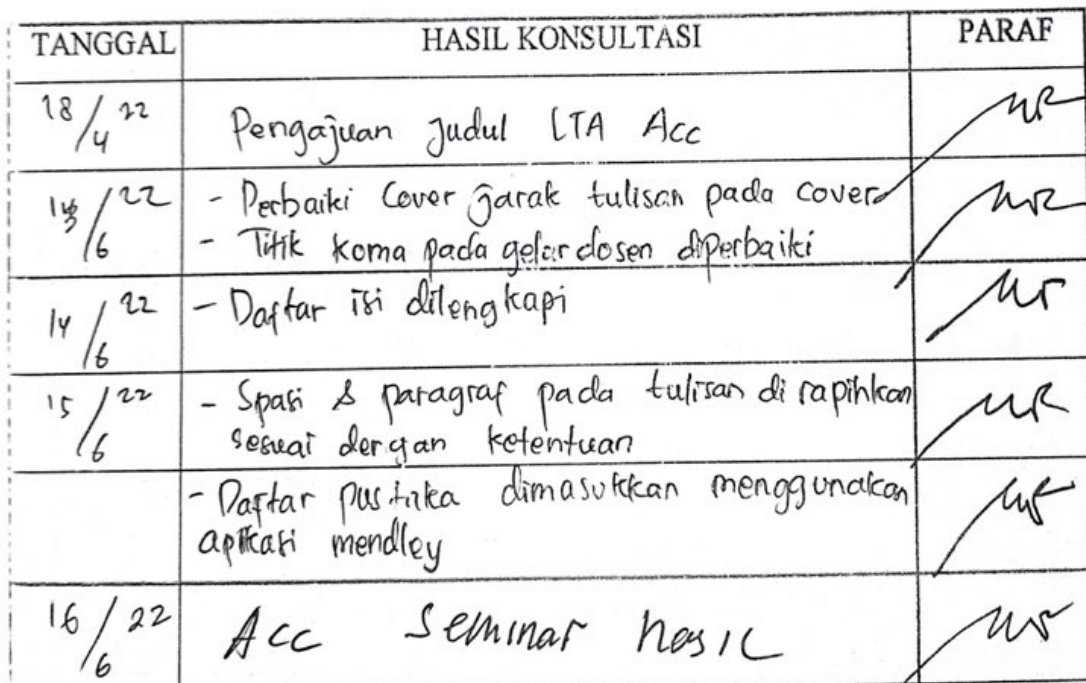 TANGGAL HASIL KONSULTASI PARAF
18/4 22 Pengajuan Judul LTA Acc
13/6 22 - Perbaiki Cover Jarak tulisan pada cover
- Titik koma pada gelar dosen diperbaiki
14/6 22 - Daftar isi dilengkapi
15/6 22 - Spasi & paragraf pada tulisan di rapihkan
sesuai dengan ketentuan
- Daftar pustaka dimasukkan menggunakan
aplikasi mendley
16/6 22 Acc Seminar hasil